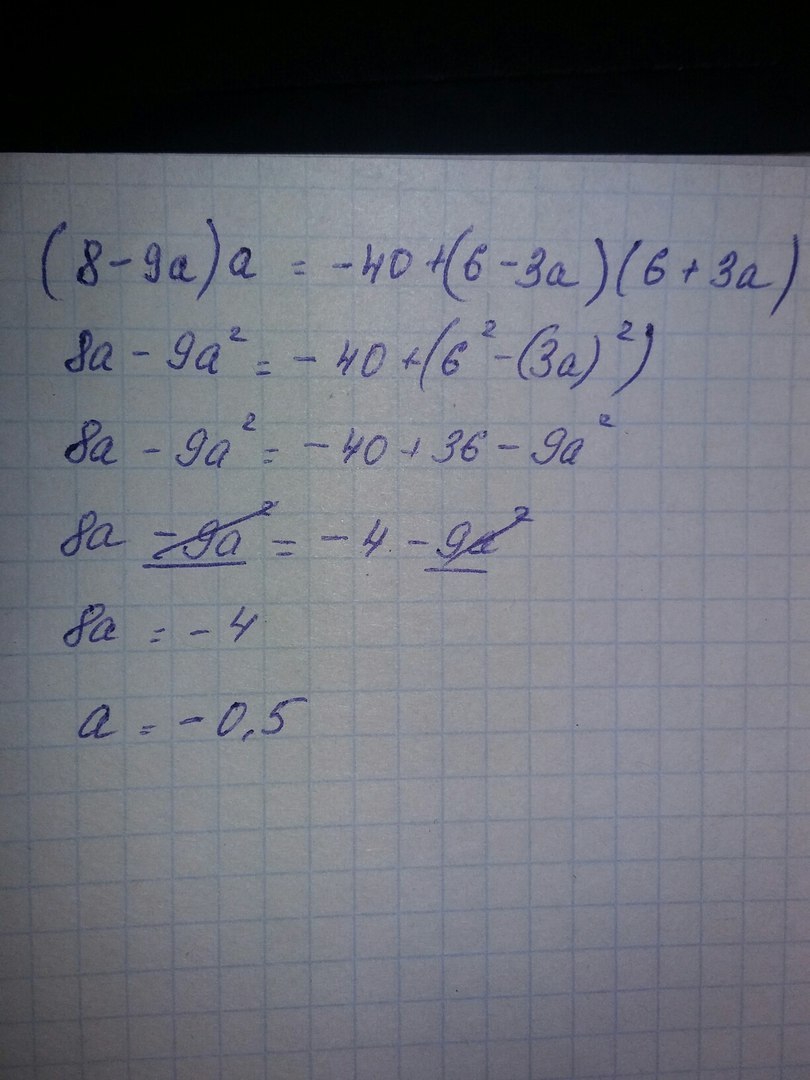 (8-9a)a = -40+(6-3a)(6+3a)
8a - 9a² = - 40 + (6² - (3a)²)
8a - 9a² = - 40 + 36 - 9a²
8a - 9a² = - 4 - 9a²
8a = - 4
a = - 0,5